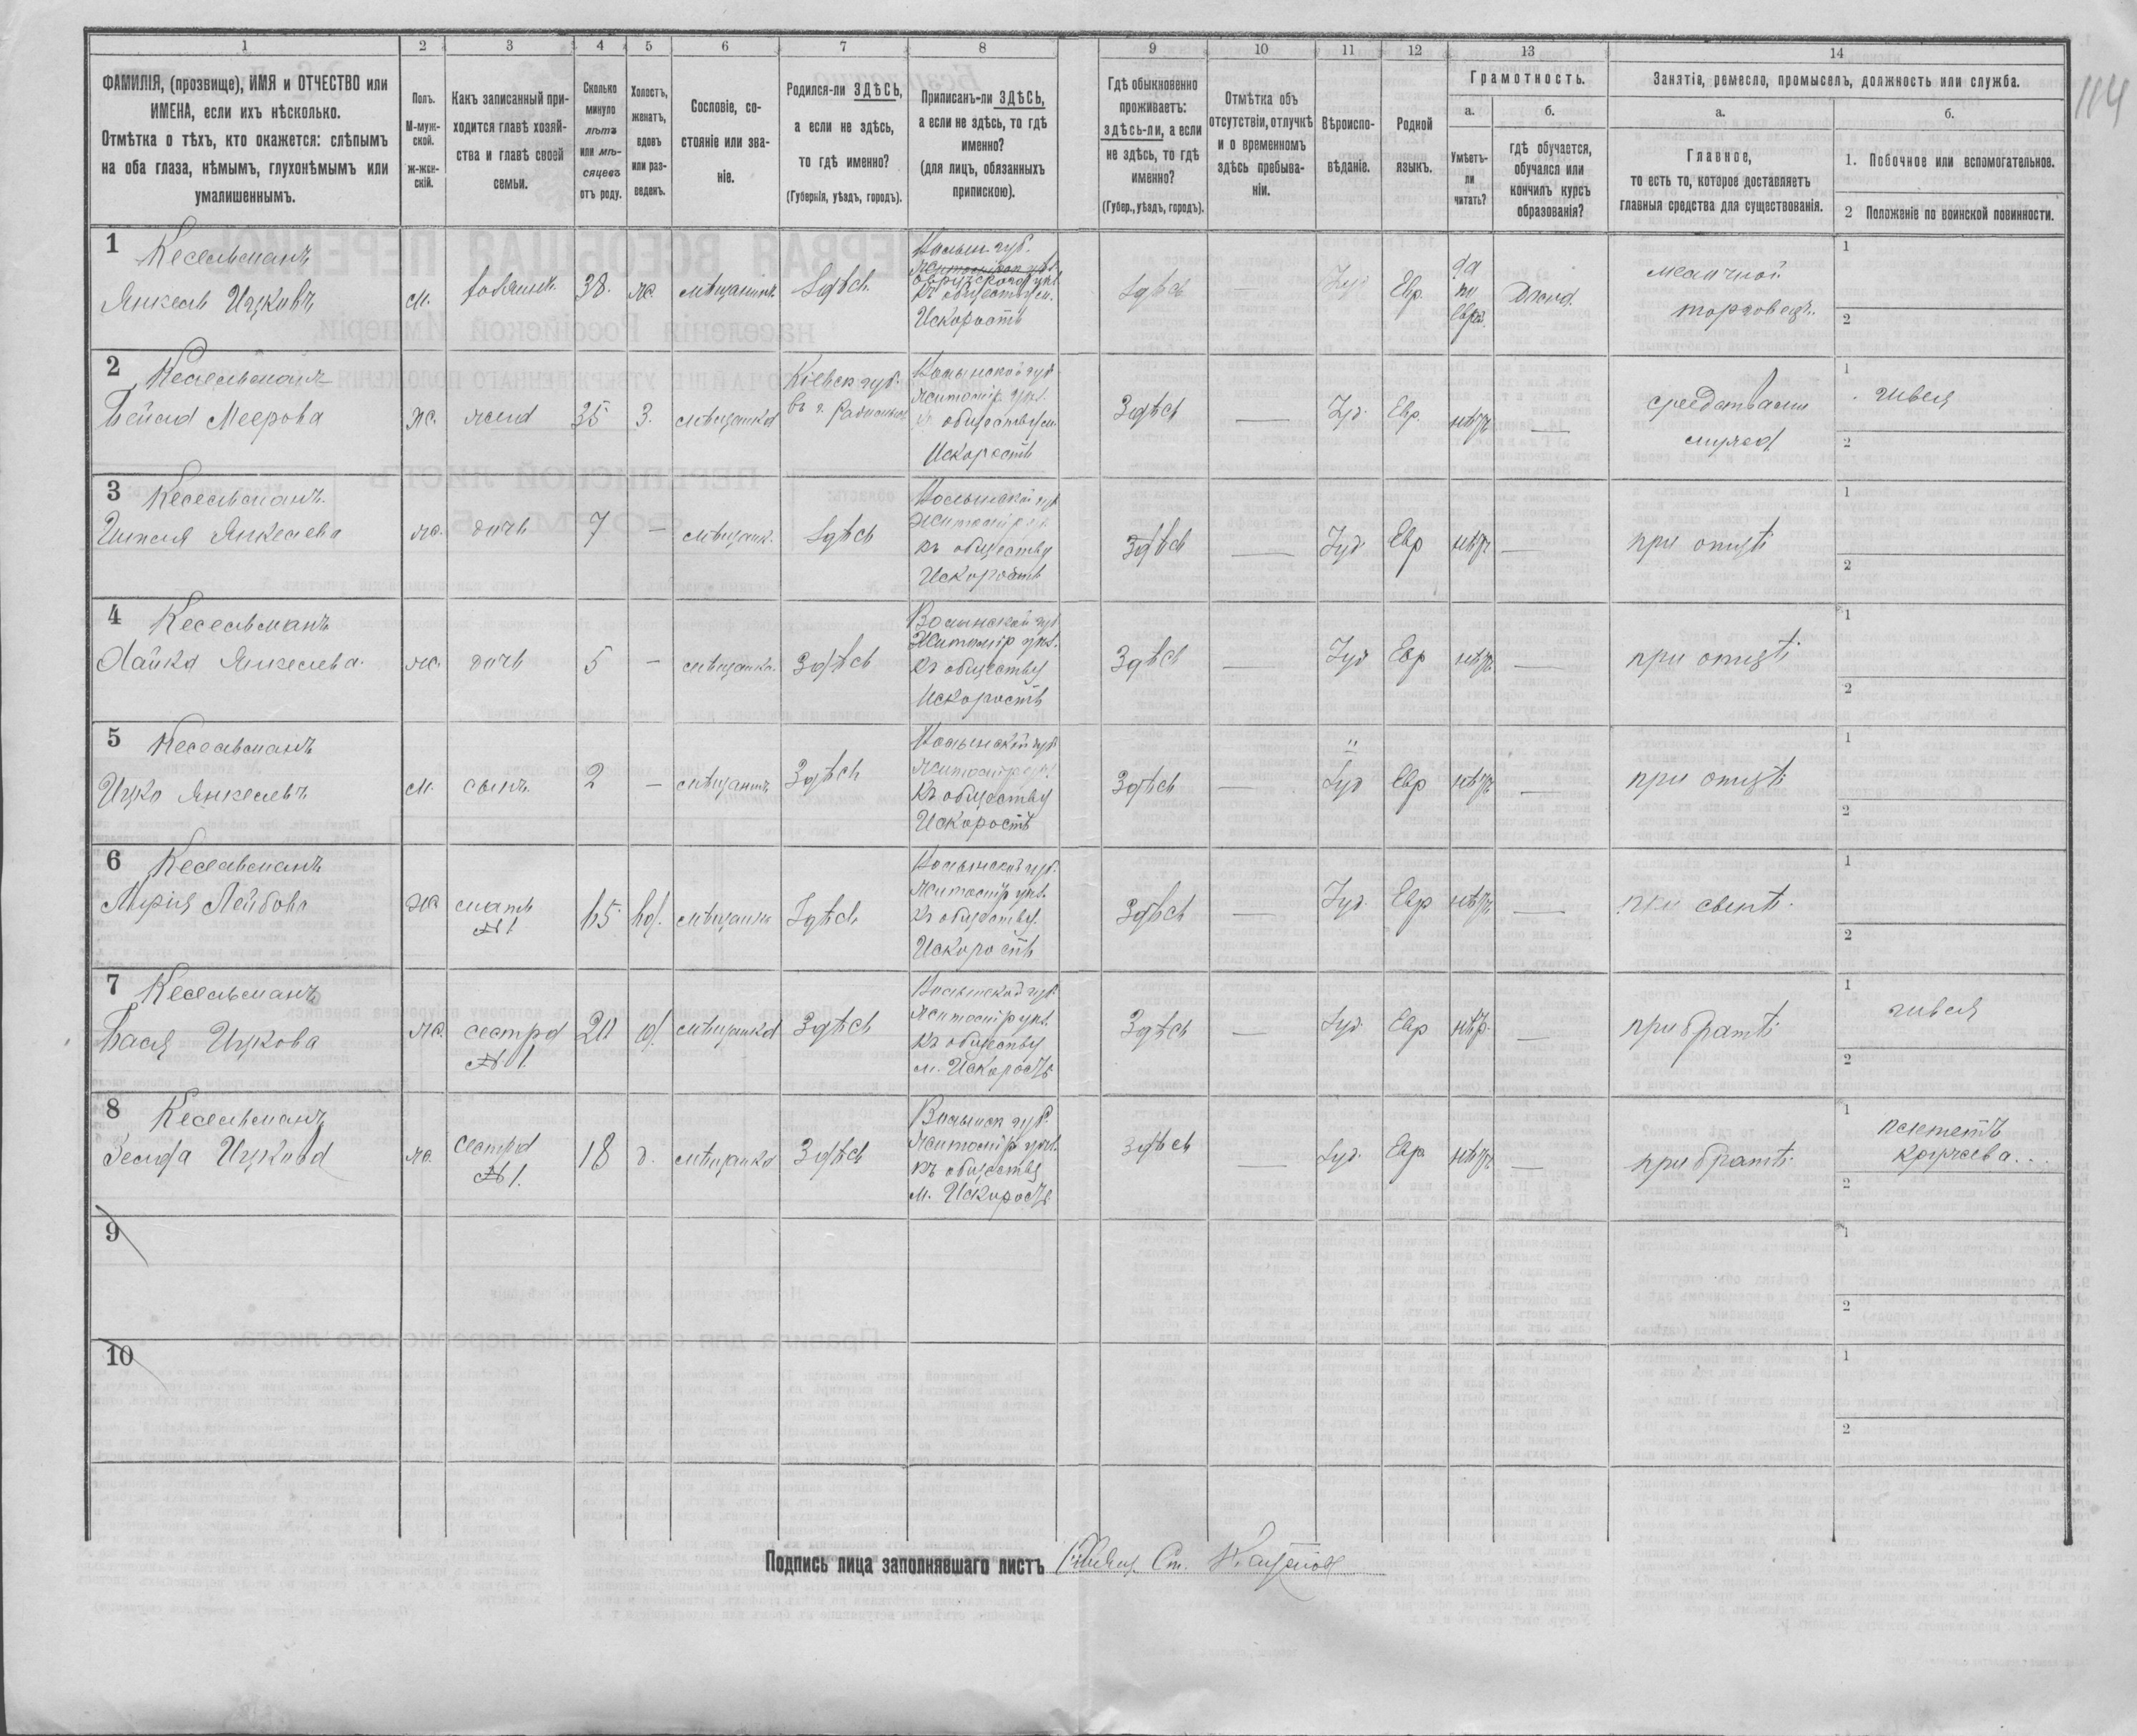 114
1 2 3 4 5 6 7 8 9 10 11 12 13 14
ФАМИЛІЯ, (прозвище), ИМЯ и ОТЧЕСТВО или ИМЕНА, если ихъ нѣсколько.
Отмѣтка о тѣхъ, кто окажется: слѣпымъ на оба глаза, нѣмымъ, глухонѣмымъ или умалишеннымъ.
Полъ.
М-муж-
ской.
ж-жен-
скій.
Какъ записанный при-
ходится главѣ хозяй-
ства и главѣ своей
семьи.
Сколько
минуло
лѣтъ
или мѣ-
сяцевъ
отъ роду.
Холостъ,
женатъ,
вдовъ
или раз-
веденъ.
Сословіе, со-
стояніе или зва-
ніе.
Родился-ли ЗДѢСЬ,
а если не здѣсь,
то гдѣ именно?
(Губернія, уѣздъ, городъ).
Приписанъ-ли ЗДѢСЬ,
а если не здѣсь, то гдѣ
именно?
(для лицъ, обязанныхъ
припискою).
Гдѣ обыкновенно
проживаетъ:
здѣсь-ли, а если
не здѣсь, то гдѣ
именно?
(Губер., уѣздъ, городъ).
Отмѣтка объ
отсутствіи, отлучкѣ
и о временномъ
здѣсь пребыва-
ніи.
Вѣроиспо-
вѣданіе.
Родной
языкъ.
Грамотность.
а.
Умѣетъ-
ли
читать?
б.
гдѣ обучается,
обучался или
кончилъ курсъ
образованія?
Занятіе, ремесло, промыселъ, должность или служба.
а.
Главное,
то есть то, которое доставляетъ
главныя средства для существованія.
б.
1. Побочное или вспомогательное.
2 Положеніе по воинской повинности.
1 Кесельманъ
Янкель Ицковъ
м. хозяинъ 38. ж. мѣщанинъ Здѣсь
Волын. губ.
Овручскаго уѣз.
къ обществу м.
Искорость
Здѣсь — Іуд Евр. да по евр. дома.
мелочной
торговецъ.
1
2
2 Кесельманъ
Бейла Меерова
ж. жена 35 З. мѣщанка
Кіевск губ.
въ г. Радомысл
Волынской губ
Житомір. уѣз.
къ обществу м.
Искорость
Здѣсь — Іуд. Евр. нѣтъ —
средствами
мужа
1 швея
2
3 Кесельманъ.
Янкелева
ж. дочь 7 — мѣщанк. Здѣсь
Волынской губ
Житомір уѣз
къ обществу
Искорость
Здѣсь — Іуд. Евр нѣтъ —
при отцѣ
1
2
4 Кесельманъ
Хайка Янкелева.
ж. дочь 5 — мѣщанка. Здѣсь
Волынской губ
Житомір уѣз.
къ обществу
Искорость
Здѣсь — Іуд Евр нѣтъ —
при отцѣ
1
2
5 Кесельманъ
Ицко Янкелевъ
м. сынъ. 2 — мѣщанинъ Здѣсь
Волынской губ
Житомір уѣз.
къ обществу
Искорость
Здѣсь — Іуд Евр нѣтъ —
при отцѣ
1
2
6 Кесельманъ
Мирля Лейбова
ж мать
№ 1
65 вд. мѣщанка Здѣсь
Волынской губ.
Житомір уѣз.
къ обществу
Искорость
Здѣсь — Іуд. Евр нѣтъ —
при сынѣ.
1
2
7 Кесельманъ
Бася Ицкова
ж. сестра
№ 1.
20 д. мѣщанка Здѣсь
Волынской губ.
Житомір уѣз.
къ обществу
м. Искорость
Здѣсь — Іуд. Евр нѣтъ. —
при братѣ
1 швея
2
8 Кесельманъ
Зелда Ицкова
ж. сестра
№ 1.
18 д. мѣщанка Здѣсь
Волынск губ.
Житомір уѣз.
къ обществу
м. Искорость
Здѣсь — Іуд. Евр. нѣтъ —
при братѣ
1 плететъ
кружева..
2
9
1
2
10
1
2
Подпись лица заполнявшаго листъ